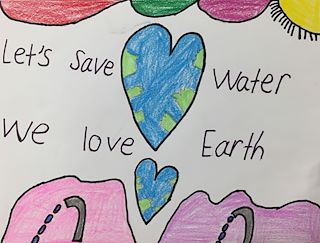 Let's Save Water
We love Earth